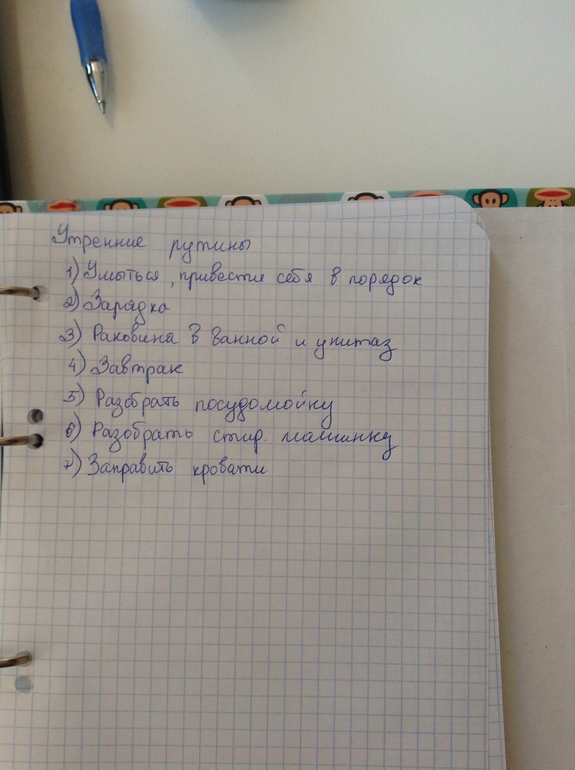 Утренние рутины
1) Умыться, привести себя в порядок
2) Зарядка
3) Раковина в ванной и унитаз
4) Завтрак
5) Разобрать посудомойку
6) Разобрать стир. машинку
7) Заправить кровати